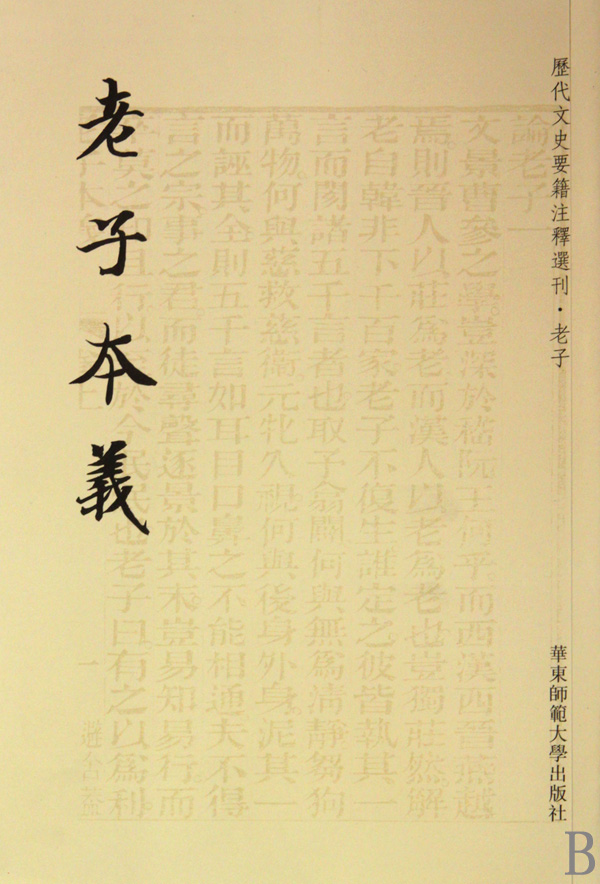 歷代文史要籍注釋選刊·老子
華東師範大學出版社
老子本義
論老子一
文景曹參之學豈深於嵇阮王何乎而西漢西晉燕越
焉則晉人以莊爲老而漢人以老爲老也豈獨莊然解
老自韓非下千百家老子不復生誰定之彼皆執其一
言而閡諸五千言者也取予翕闢何與無爲清靜芻狗
萬物何與慈救慈衞元牝久視何與後身外身泥其一
而誣其全則五千言如耳目口鼻之不能相通夫不得
言之宗事之君而徒尋聲逐景於其末豈易知易行而
莫之知且行以至於今泯泯也老子曰有之以爲利
一
B